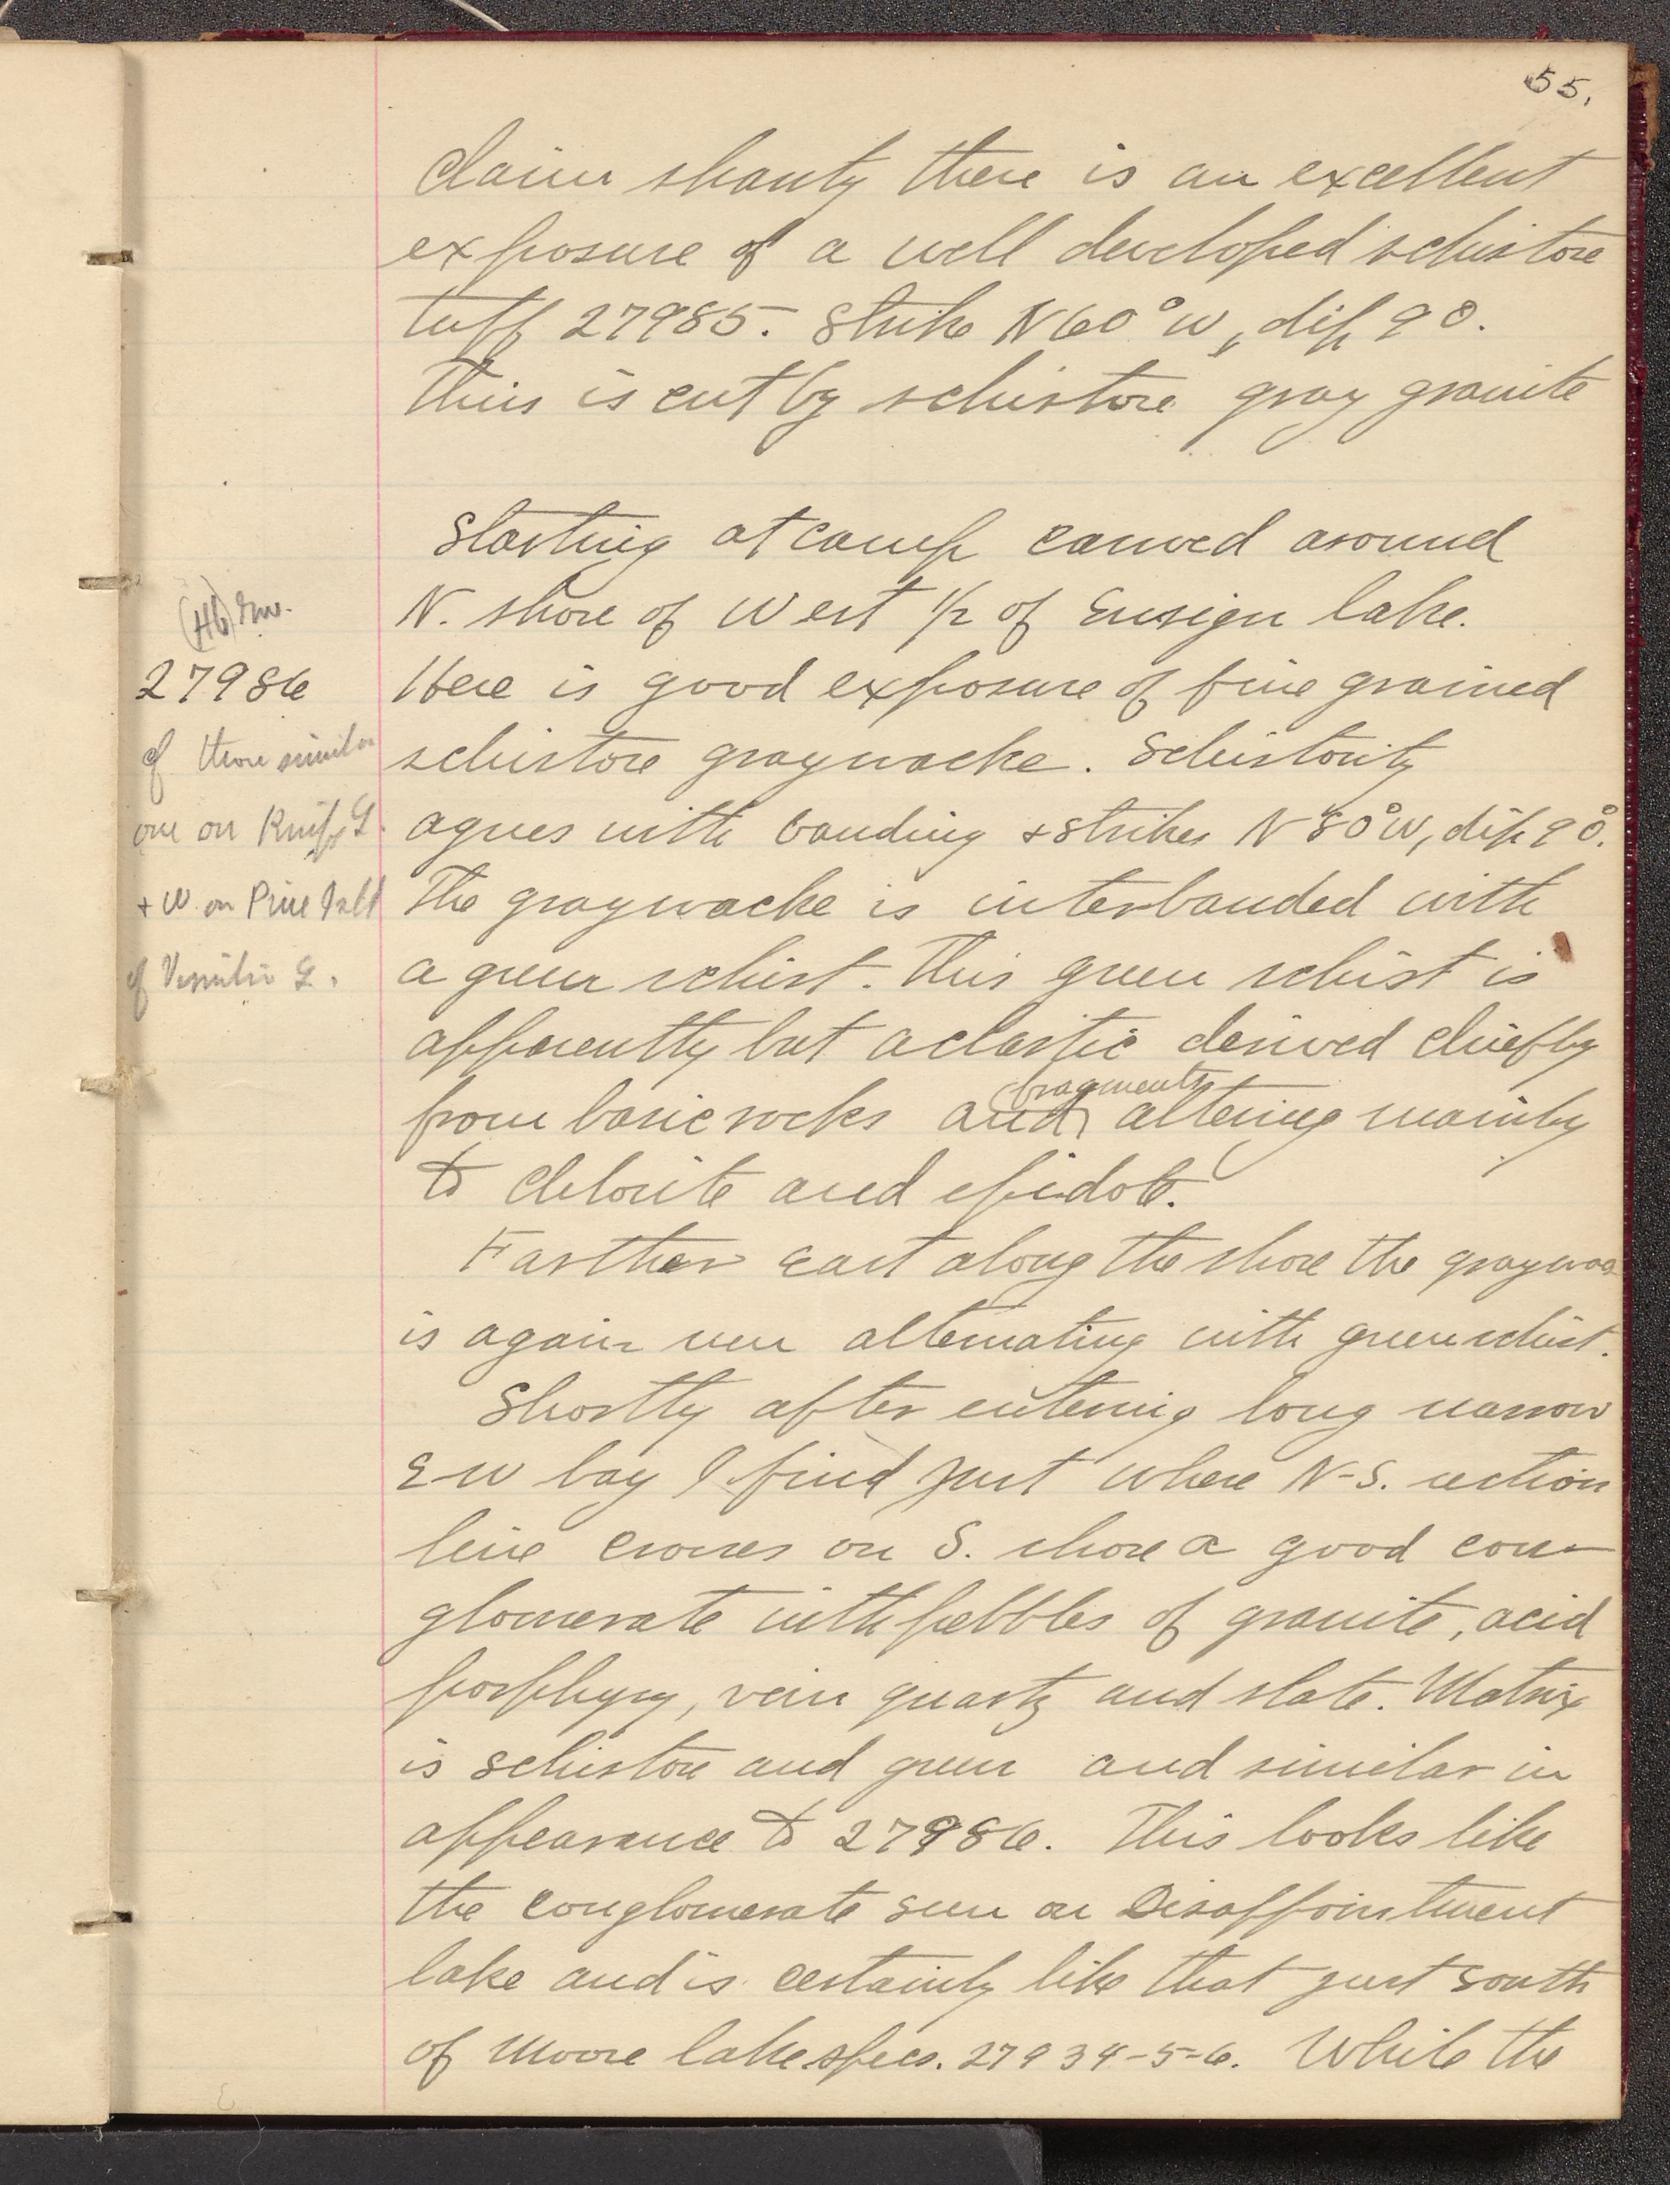 55.
claim shanty there is an excellent
exposure of a well developed schistose
tuff 27985. Strike N60°W, dip 90.
This is cut by schistose gray granite
Starting at camp canoed around
N. shore of West 1/2 of Ensign lake.
Here is good exposure of fine grained
schistose graywacke. Schistosity
agrees with banding & strikes N80°W, dip 90°.
The graywacke is interbanded with
a green schist. This green schist is
apparently but a clastic derived chiefly
fragments
from basic rocks and altering mainly
to chlorite and epidote.
Farther east along the shore the graywac
is again seen alternating with green schist.
Shortly after entering long narrow
E-W bay I find just where N-S. section
line crosses on S. shore a good con-
glomerate with pebbles of granite, acid
porphyry, vein quartz and slate. Matrix
is schistose and green and similar in
appearance to 27986. This looks like
the conglomerate seen on Disappointment
lake and is certainly like that just south
of Moore lake specs. 27934-5-6. While the
27986
of those similar
one on Knife L.
+ W. on Pine Isld
of Vermilion L.